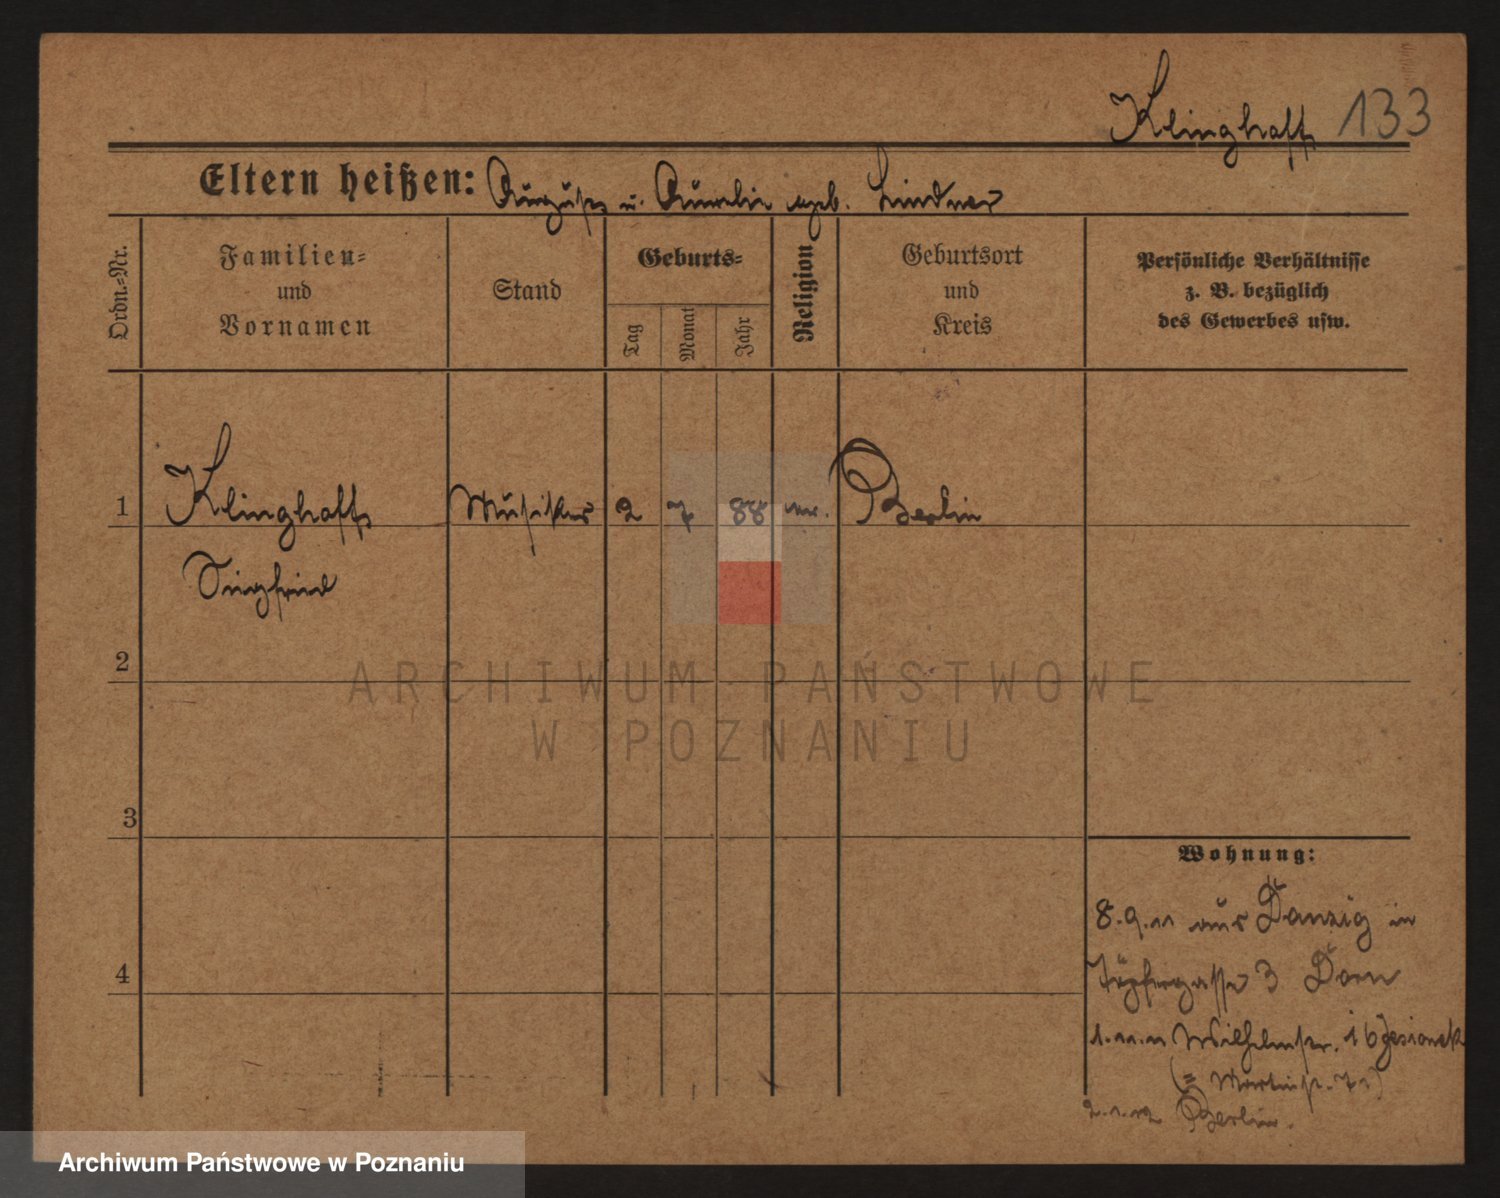 Klinghaff 133
Eltern heißen: August u. Aurelie geb. Lindner
Ordn.-Nr.
Familien-
und
Vornamen
Stand
Geburts-
Tag
Monat
Jahr
Religion
Geburtsort
und
Kreis
Persönliche Verhältnisse
z. B. bezüglich
des Gewerbes usw.
1 Klinghaff Musiker 2 7 88 Berlin
Siegfried
2
3
4
Wohnung:
8.9.11 aus Danzig in
Töpfergasse 3 Dorn
1.11.11 Wilhelmstr. 16
(= Martinstr.
2.1.12 Berlin.
ARCHIWUM PAŃSTWOWE
W POZNANIU
Archiwum Państwowe w Poznaniu